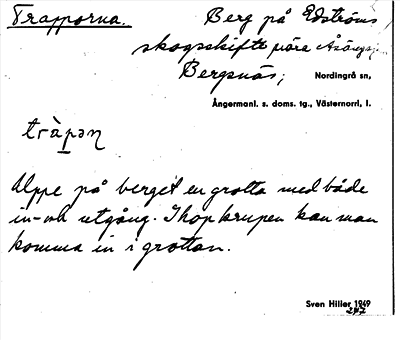 Trapporna.
Berg på Edströms
skogsskifte nära Åsängsj.
Bergsnäs;
Nordingrå sn,
Ångermanl. s. doms. tg., Västernorrl. l.
tràpǝn
Uppe på berget en grotta med både
in- och utgång. Ihopkrupen kan man
komma in i grottan.
Sven Hilier 1949
247